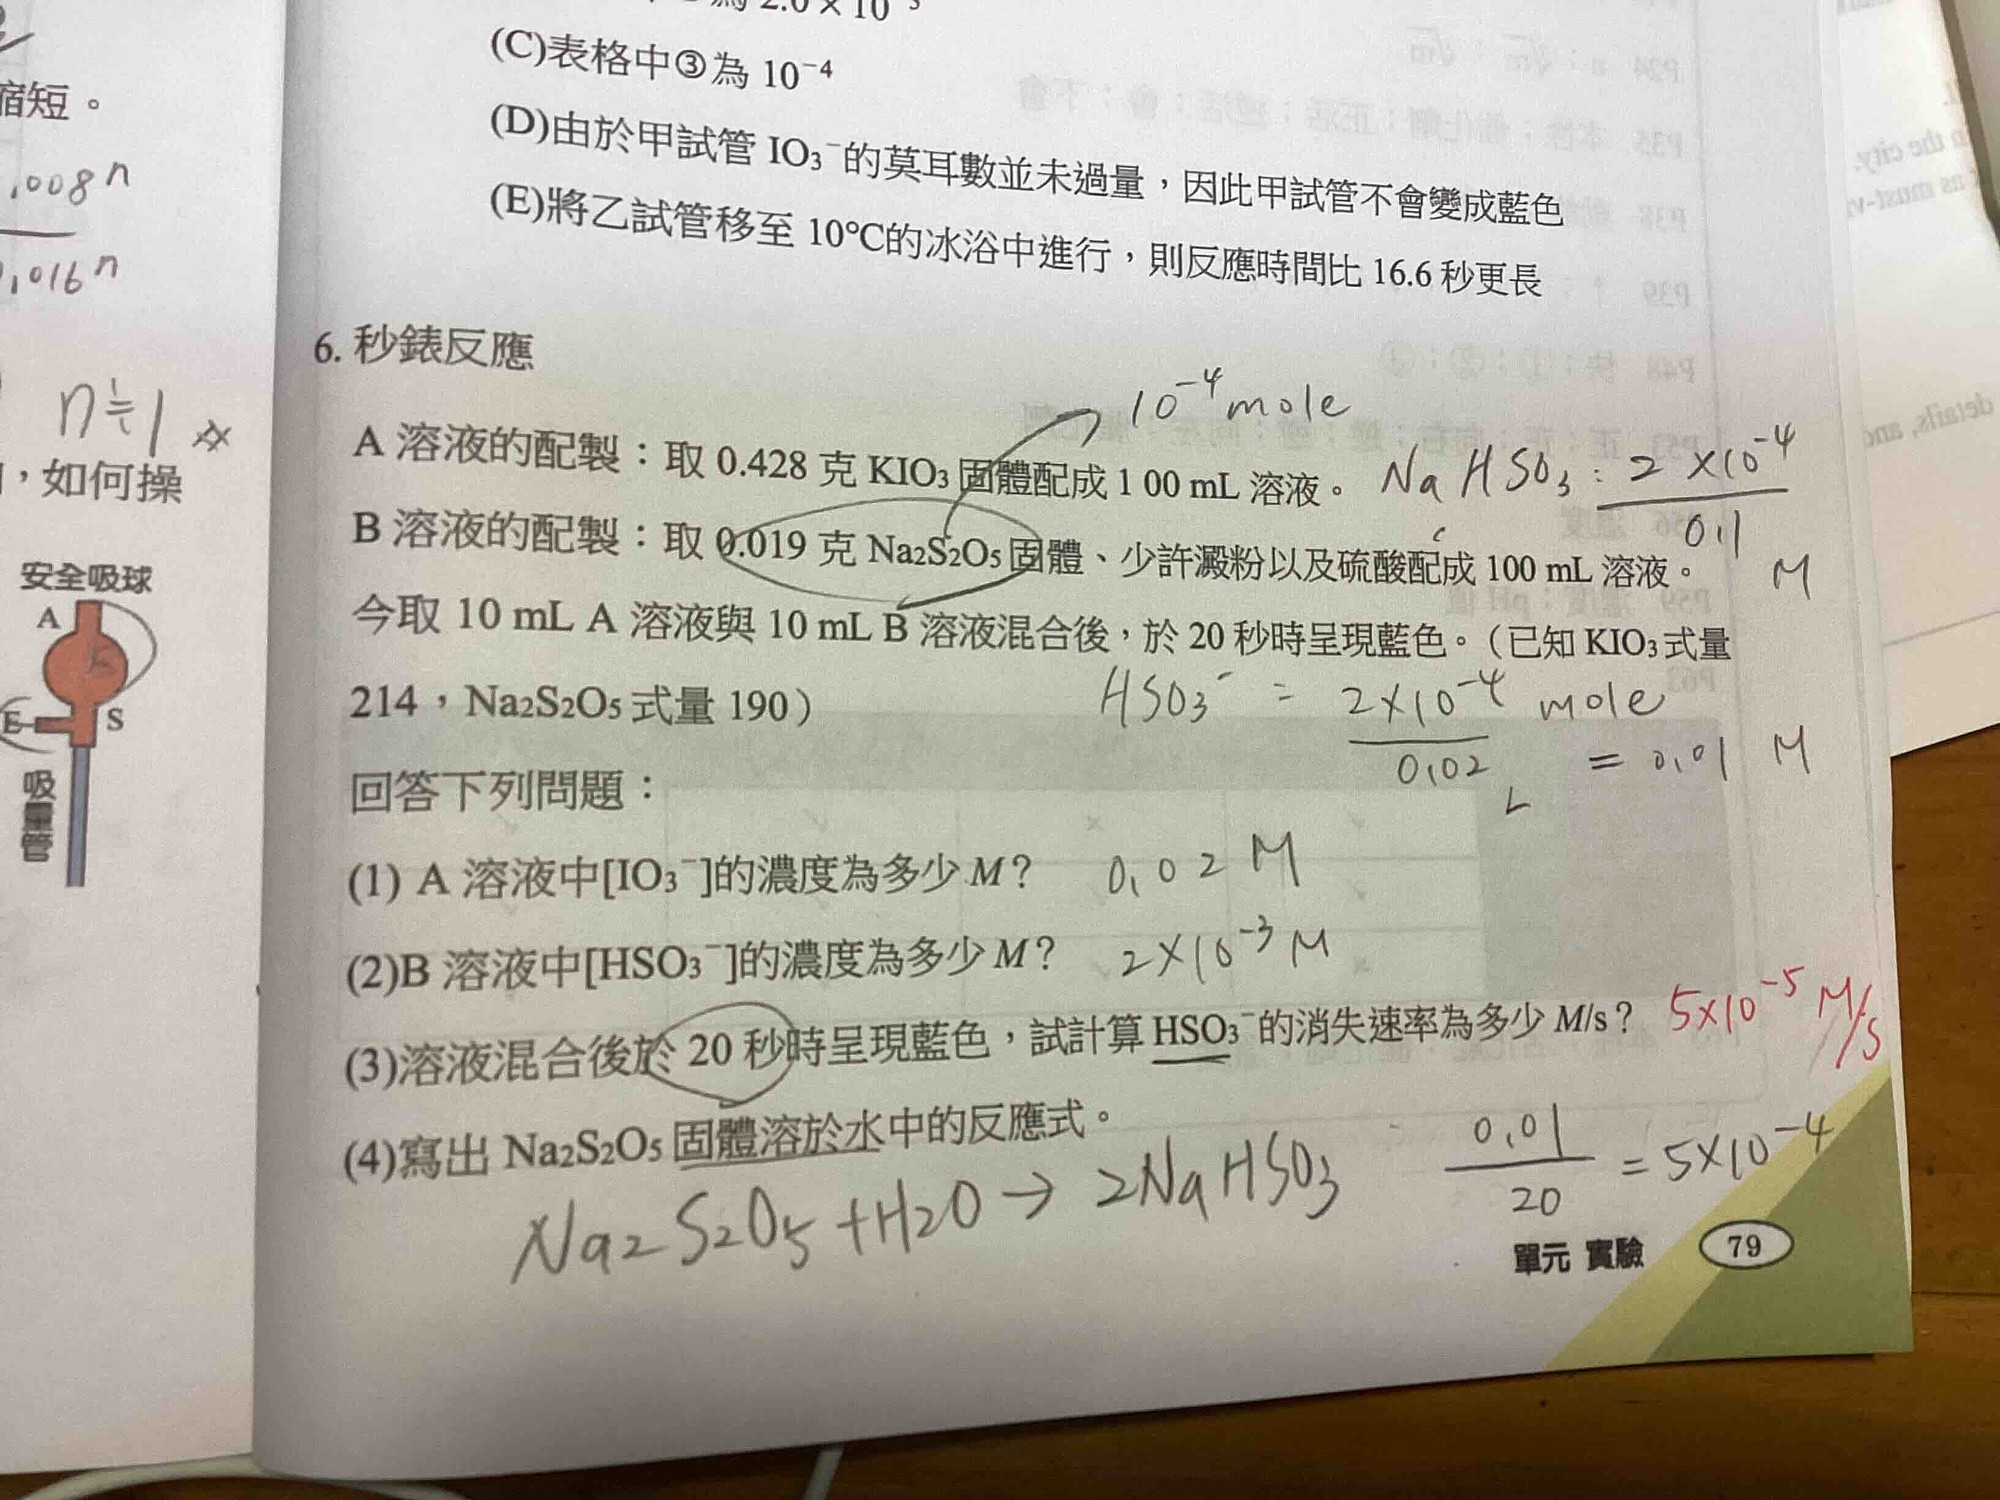 縮短。
.008n
.016n
n≒1
，如何操
安全吸球
A
E
S
吸量管
2.0×10
(C)表格中③為 10⁻⁴
(D)由於甲試管 IO₃⁻的莫耳數並未過量，因此甲試管不會變成藍色
(E)將乙試管移至 10℃的冰浴中進行，則反應時間比 16.6 秒更長
6. 秒錶反應
10⁻⁴ mole
A 溶液的配製：取 0.428 克 KIO₃ 固體配成 1 00 mL 溶液。
NaHSO₃ : 2×10⁻⁴
0.1
M
B 溶液的配製：取 0.019 克 Na₂S₂O₅ 固體、少許澱粉以及硫酸配成 100 mL 溶液。
今取 10 mL A 溶液與 10 mL B 溶液混合後，於 20 秒時呈現藍色。（已知 KIO₃ 式量
214，Na₂S₂O₅ 式量 190）
HSO₃⁻ = 2×10⁻⁴ mole
0.02 L
= 0.01 M
回答下列問題：
(1) A 溶液中[IO₃⁻]的濃度為多少 M？ 0.02 M
(2)B 溶液中[HSO₃⁻]的濃度為多少 M？ 2×10⁻³ M
(3)溶液混合後於 20 秒時呈現藍色，試計算 HSO₃⁻的消失速率為多少 M/s？ 5×10⁻⁵ M/s
(4)寫出 Na₂S₂O₅ 固體溶於水中的反應式。
Na₂S₂O₅+H₂O→2NaHSO₃
0.01
20
= 5×10⁻⁴
單元 實驗 79